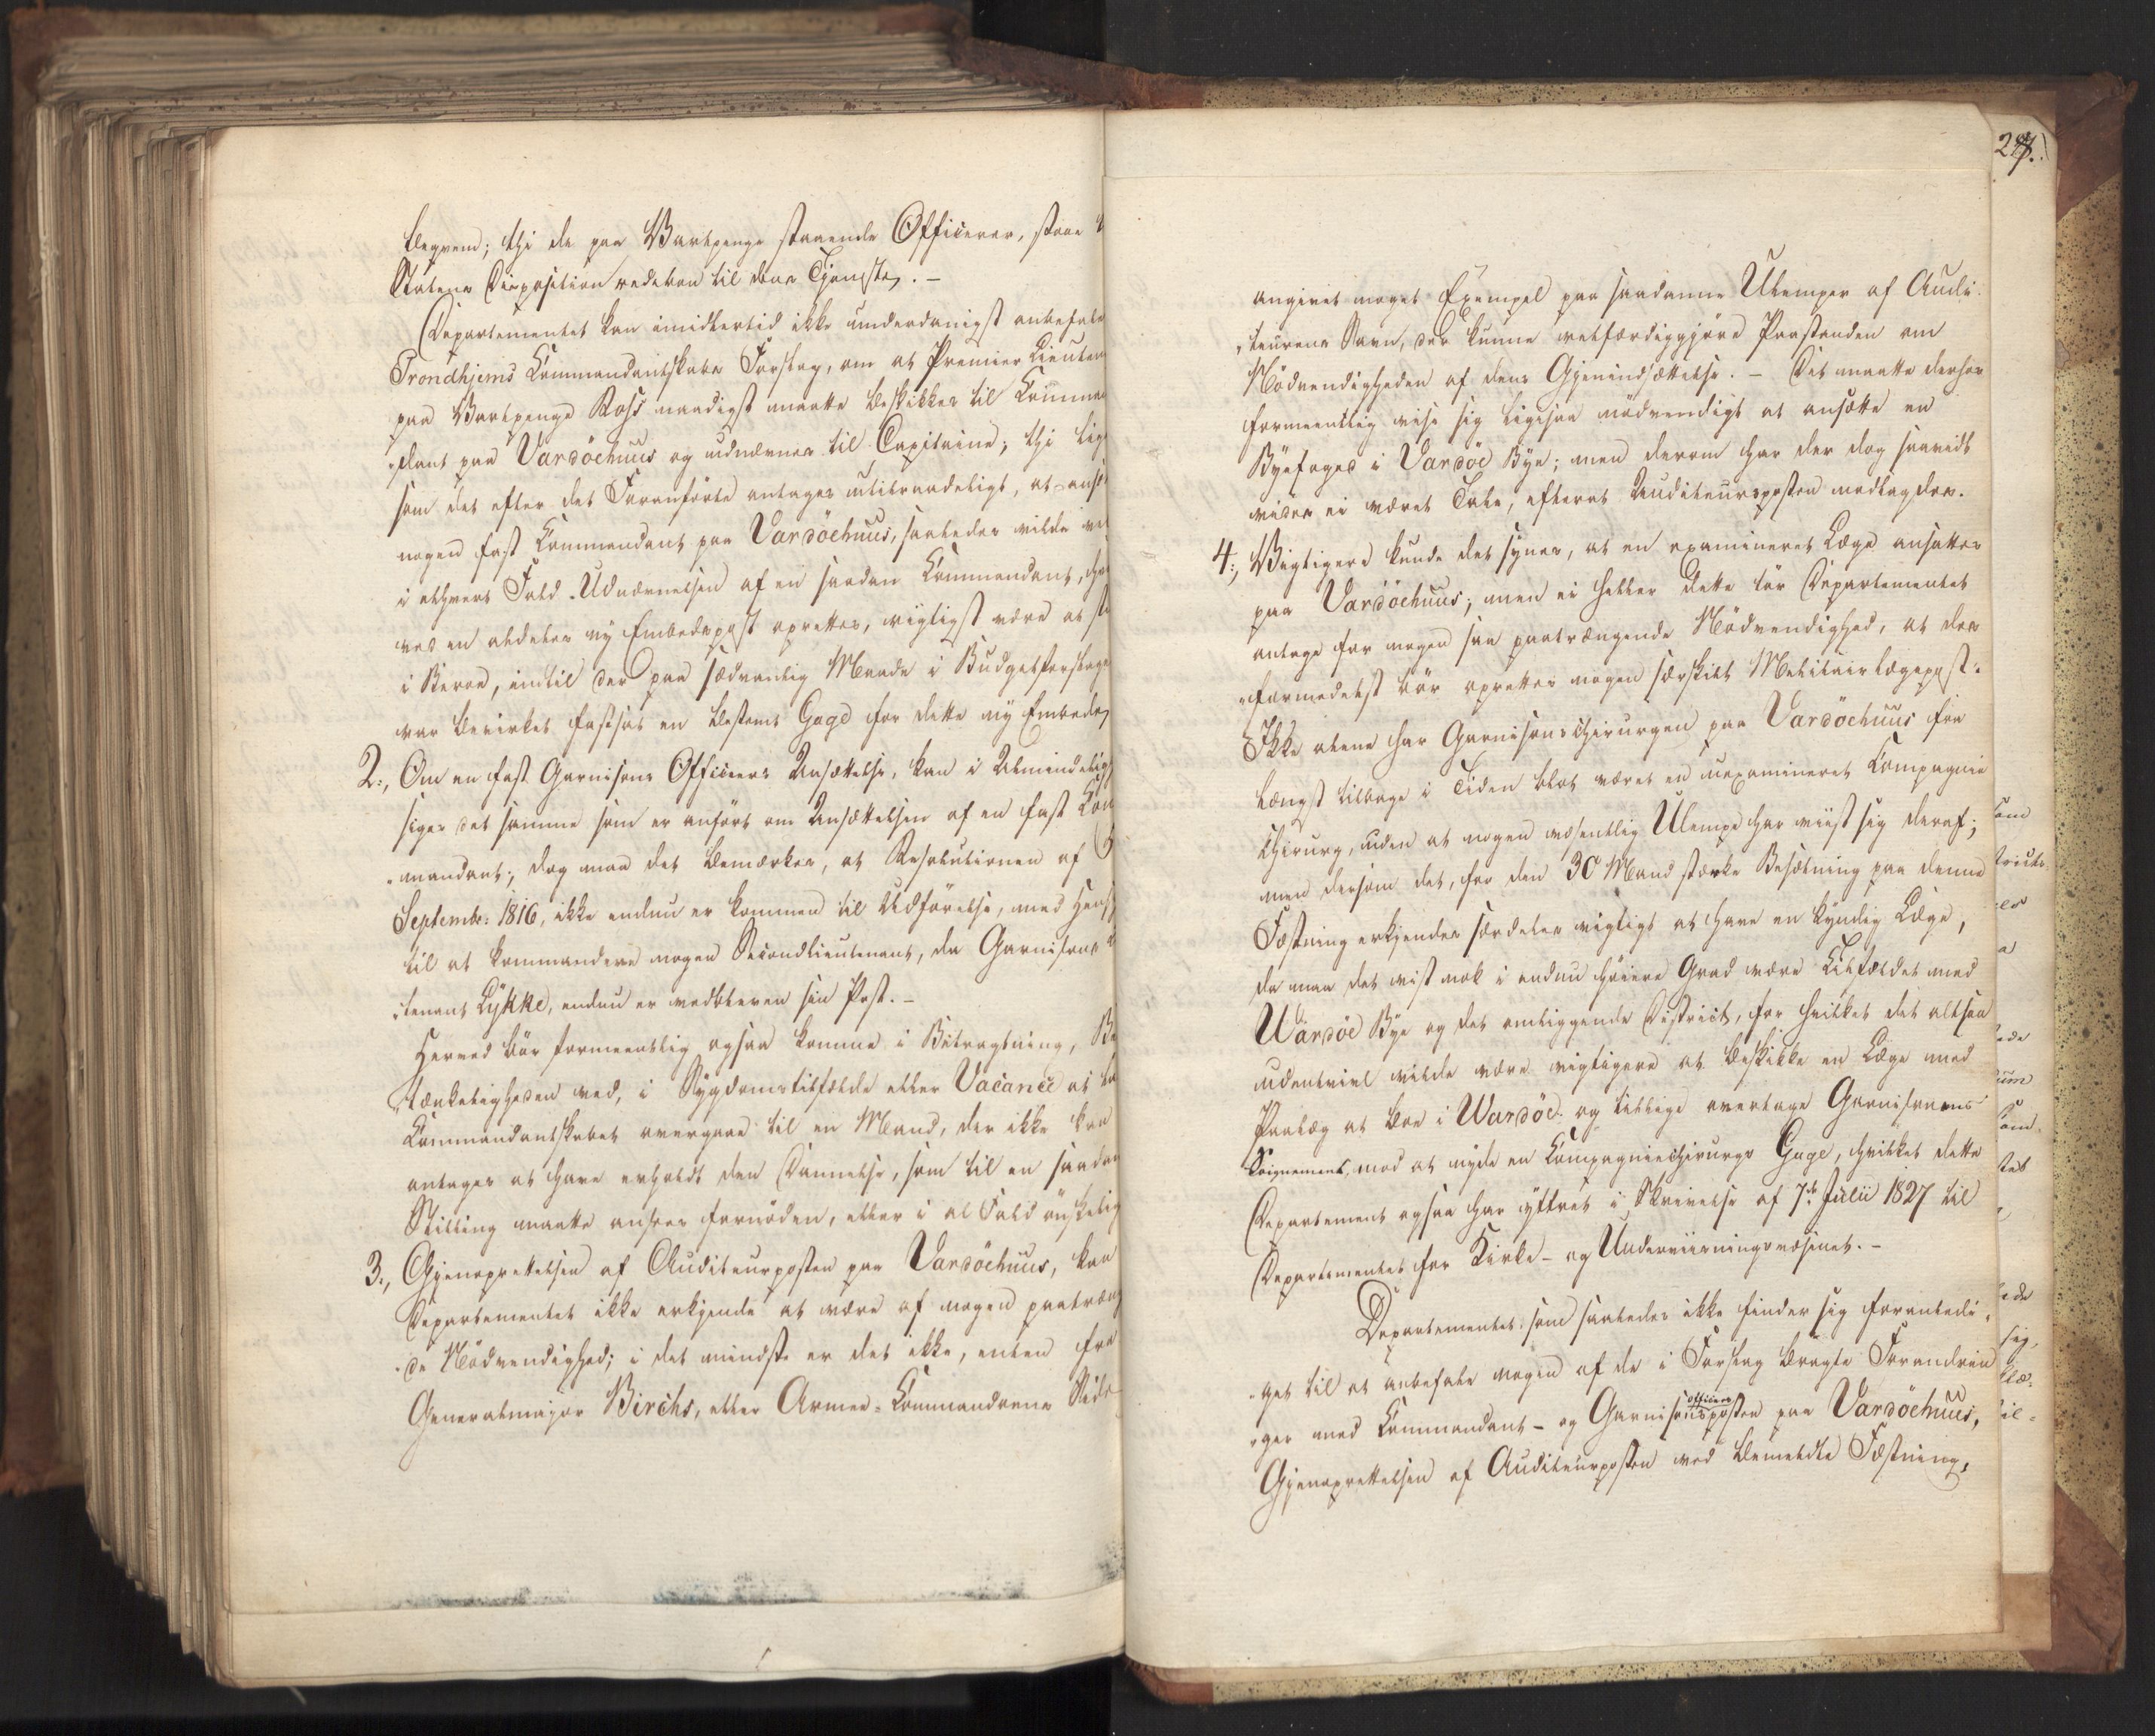 beqvem; thi de paa Vartpenge staaende Officerer, staae
Statens Disposition rede kun til dens Tjeneste. -
Departementet kan imidlertid ikke underdanigst anbefale
Trondhjems Kommandantskabs Forslag, om at Premier Lieuten
paa Vartpenge Ross naadigst maatte beskikkes til Komman
"dant paa Vardöehuus og udnævnes til Capitaine; thi lige
som det efter det Foranförte antages utilraadeligt, at ansæt
nogen fast Kommandant paa Vardöehuus, saaledes vilde
i ethvert Fald Udnævnelsen af en saadan Kommandant,
ved en aldeles ny Embedspost oprettes, rigtigst være at
i Beroe, indtil der paa sædvanlig Maade i Budgetforslaget
var bevirket fastsat en bestemt Gage for dette ny Embede
2., Om en fast Garnisons Officeers Ansættelse, kan i Almindelig
siges det samme som er anfört om Ansættelsen af en fast Kom
"mandant; dog maa det bemærkes, at Resolutionen af
Septembr: 1816, ikke endnu er kommen til Udförelse, med Hens
til at kommandere nogen Secondlieutenant, da Garnisons
"tenant Lykke, endnu er vedbleven sin Post. -
Herved bör formeentlig ogsaa komme i Betragtning, Be
"tænkeligheden ved, i Sygdomstilfælde eller Vacance at la
Kommandantskabet overgaae til en Mand, der ikke kan
antages at have erholdt den Dannelse, som til en saadan
Stilling maatte ansees fornöden, eller i al Fald önskelig
3., Gjenoprettelsen af Auditeurposten paa Vardöehuus, kan
Departementet ikke erkjende at være af nogen paatræng
"de Nödvendighed; i det mindste er det ikke, enten fra
Generalmajor Birchs, eller Armee-Kommandoens Side
27.
angivet noget Exempel paa saadanne Ulemper af Audi
"teurens Savn, der kunne retfærdiggjöre Paastanden om
Nödvendigheden af dens Gjenindsættelse. - Det maatte derhos
formeentlig vise sig ligesaa nödvendigt at ansætte en
Byefoged i Vardöe Bye; men derom har der dog saavidt
vides ei været Tale, efterat Auditeursposten nedlagdes.
4., Vigtigere kunde det synes, at en examineret Læge ansattes
paa Vardöehuus; men ei heller dette tör Departementet
antage for nogen saa paatrængende Nödvendighed, at der
"formedelst bör oprettes nogen særskilt Militairlægepost.
Ikke alene har Garnisonschirurgen paa Vardöehuus fra
længst tilbage i Tiden blot været en uexamineret Kompagnie
Chirurg, uden at nogen væsentlig Ulempe har viist sig deraf;
men dersom det, for den 30 Mand stærke Besætning paa denne
Fæstning erkjendes særdeles vigtigt at have en kyndig Læge,
da maa det vist nok i endnu höiere Grad være Tilfældet med
Wardöe Bye og det omliggende District, for hvilket det altsaa
udentvivl vilde være vigtigere at beskikke en Læge med
Paalæg at boe i Wardöe og tillige overtage Garnisonens
Soignement, mod at nyde en Kompagniechirurgs Gage, hvilket dette
Departement ogsaa har yttret i Skrivelse af 7de Julii 1827 til
Departementet for Kirke- og Underviisningsvæsenet. -
Departementet som saaledes ikke finder sig foranledi
"get til at anbefale nogen af de i Forslag bragte Forandrin
"ger med Kommandant- og Garnisonsofficersposten paa Vardöehuus,
Gjenoprettelsen af Auditeurposten ved bemeldte Fæstning,